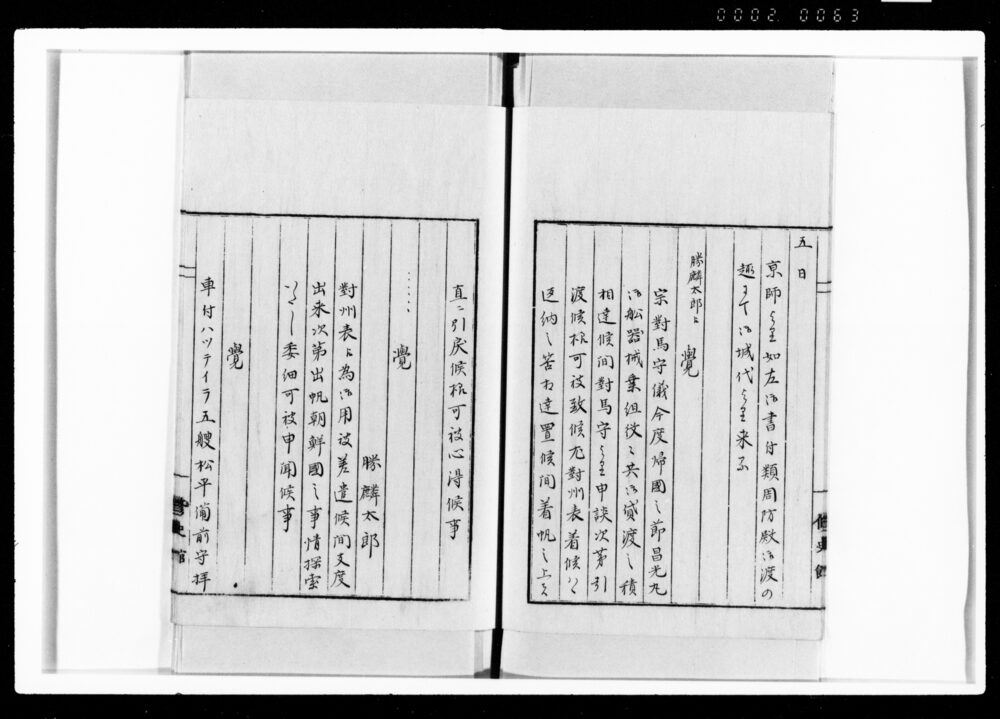 0002 0063
五日
京師ゟ如左御書付類周防殿御渡の
趣ニて御城代ゟ来ル
勝麟太郎ゟ
覺
宗對馬守儀今度帰國之節昌光丸
御船器械乗組役々共御貸渡之積
相達候間對馬守ゟ申談次第引
渡候様可被致候尤對州表着候ハヽ
返納之筈相達置候間着帆之上ハ
直ニ引戻候様可被心得候事
覺
勝麟太郎
對州表ゟ為御用被差遣候間支度
出来次第出帆朝鮮國之事情探索
いたし委細可被申聞候事
覺
車付ハツテイラ五艘松平備前守拝
修史館
修史館